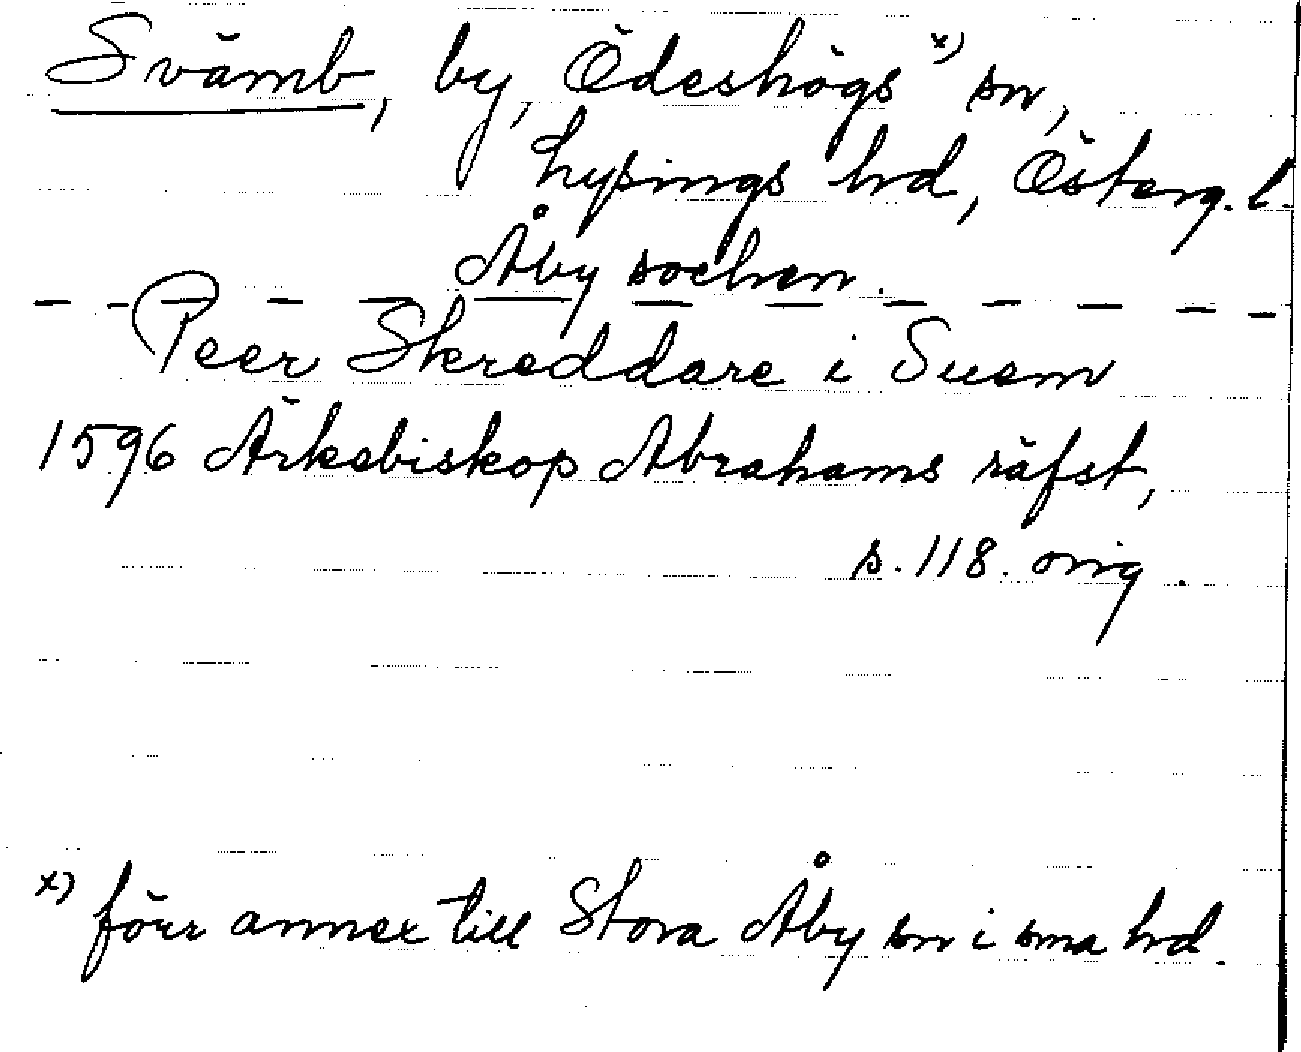 Svämb, by, Ödeshögs x) sn,
Lysings hrd, Österg. l.
Åby sochen.
Peer Skreddare i Suem
1596 Ärkebiskop Abrahams räfst,
s. 118. orig.
x) förr annex till Stora Åby sn i sma hrd.